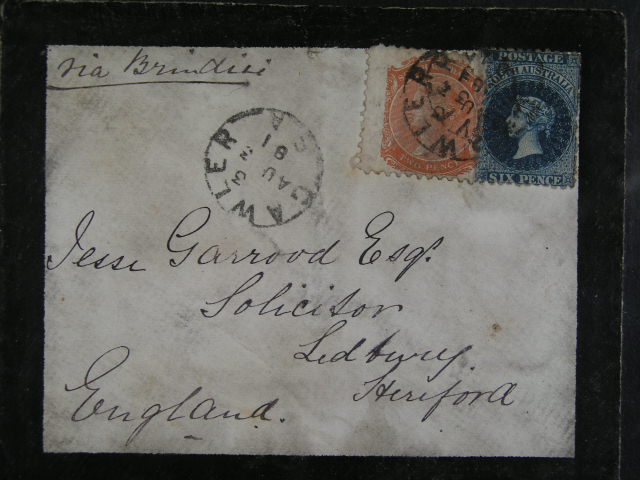 via Brindisi
POSTAGE
SOUTH AUSTRALIA
TWO PENCE
SIX PENCE
GAWLER
S A
AU
81
Jesse Garrood Esqr.
Solicitor
Ledbury
Hereford
England.